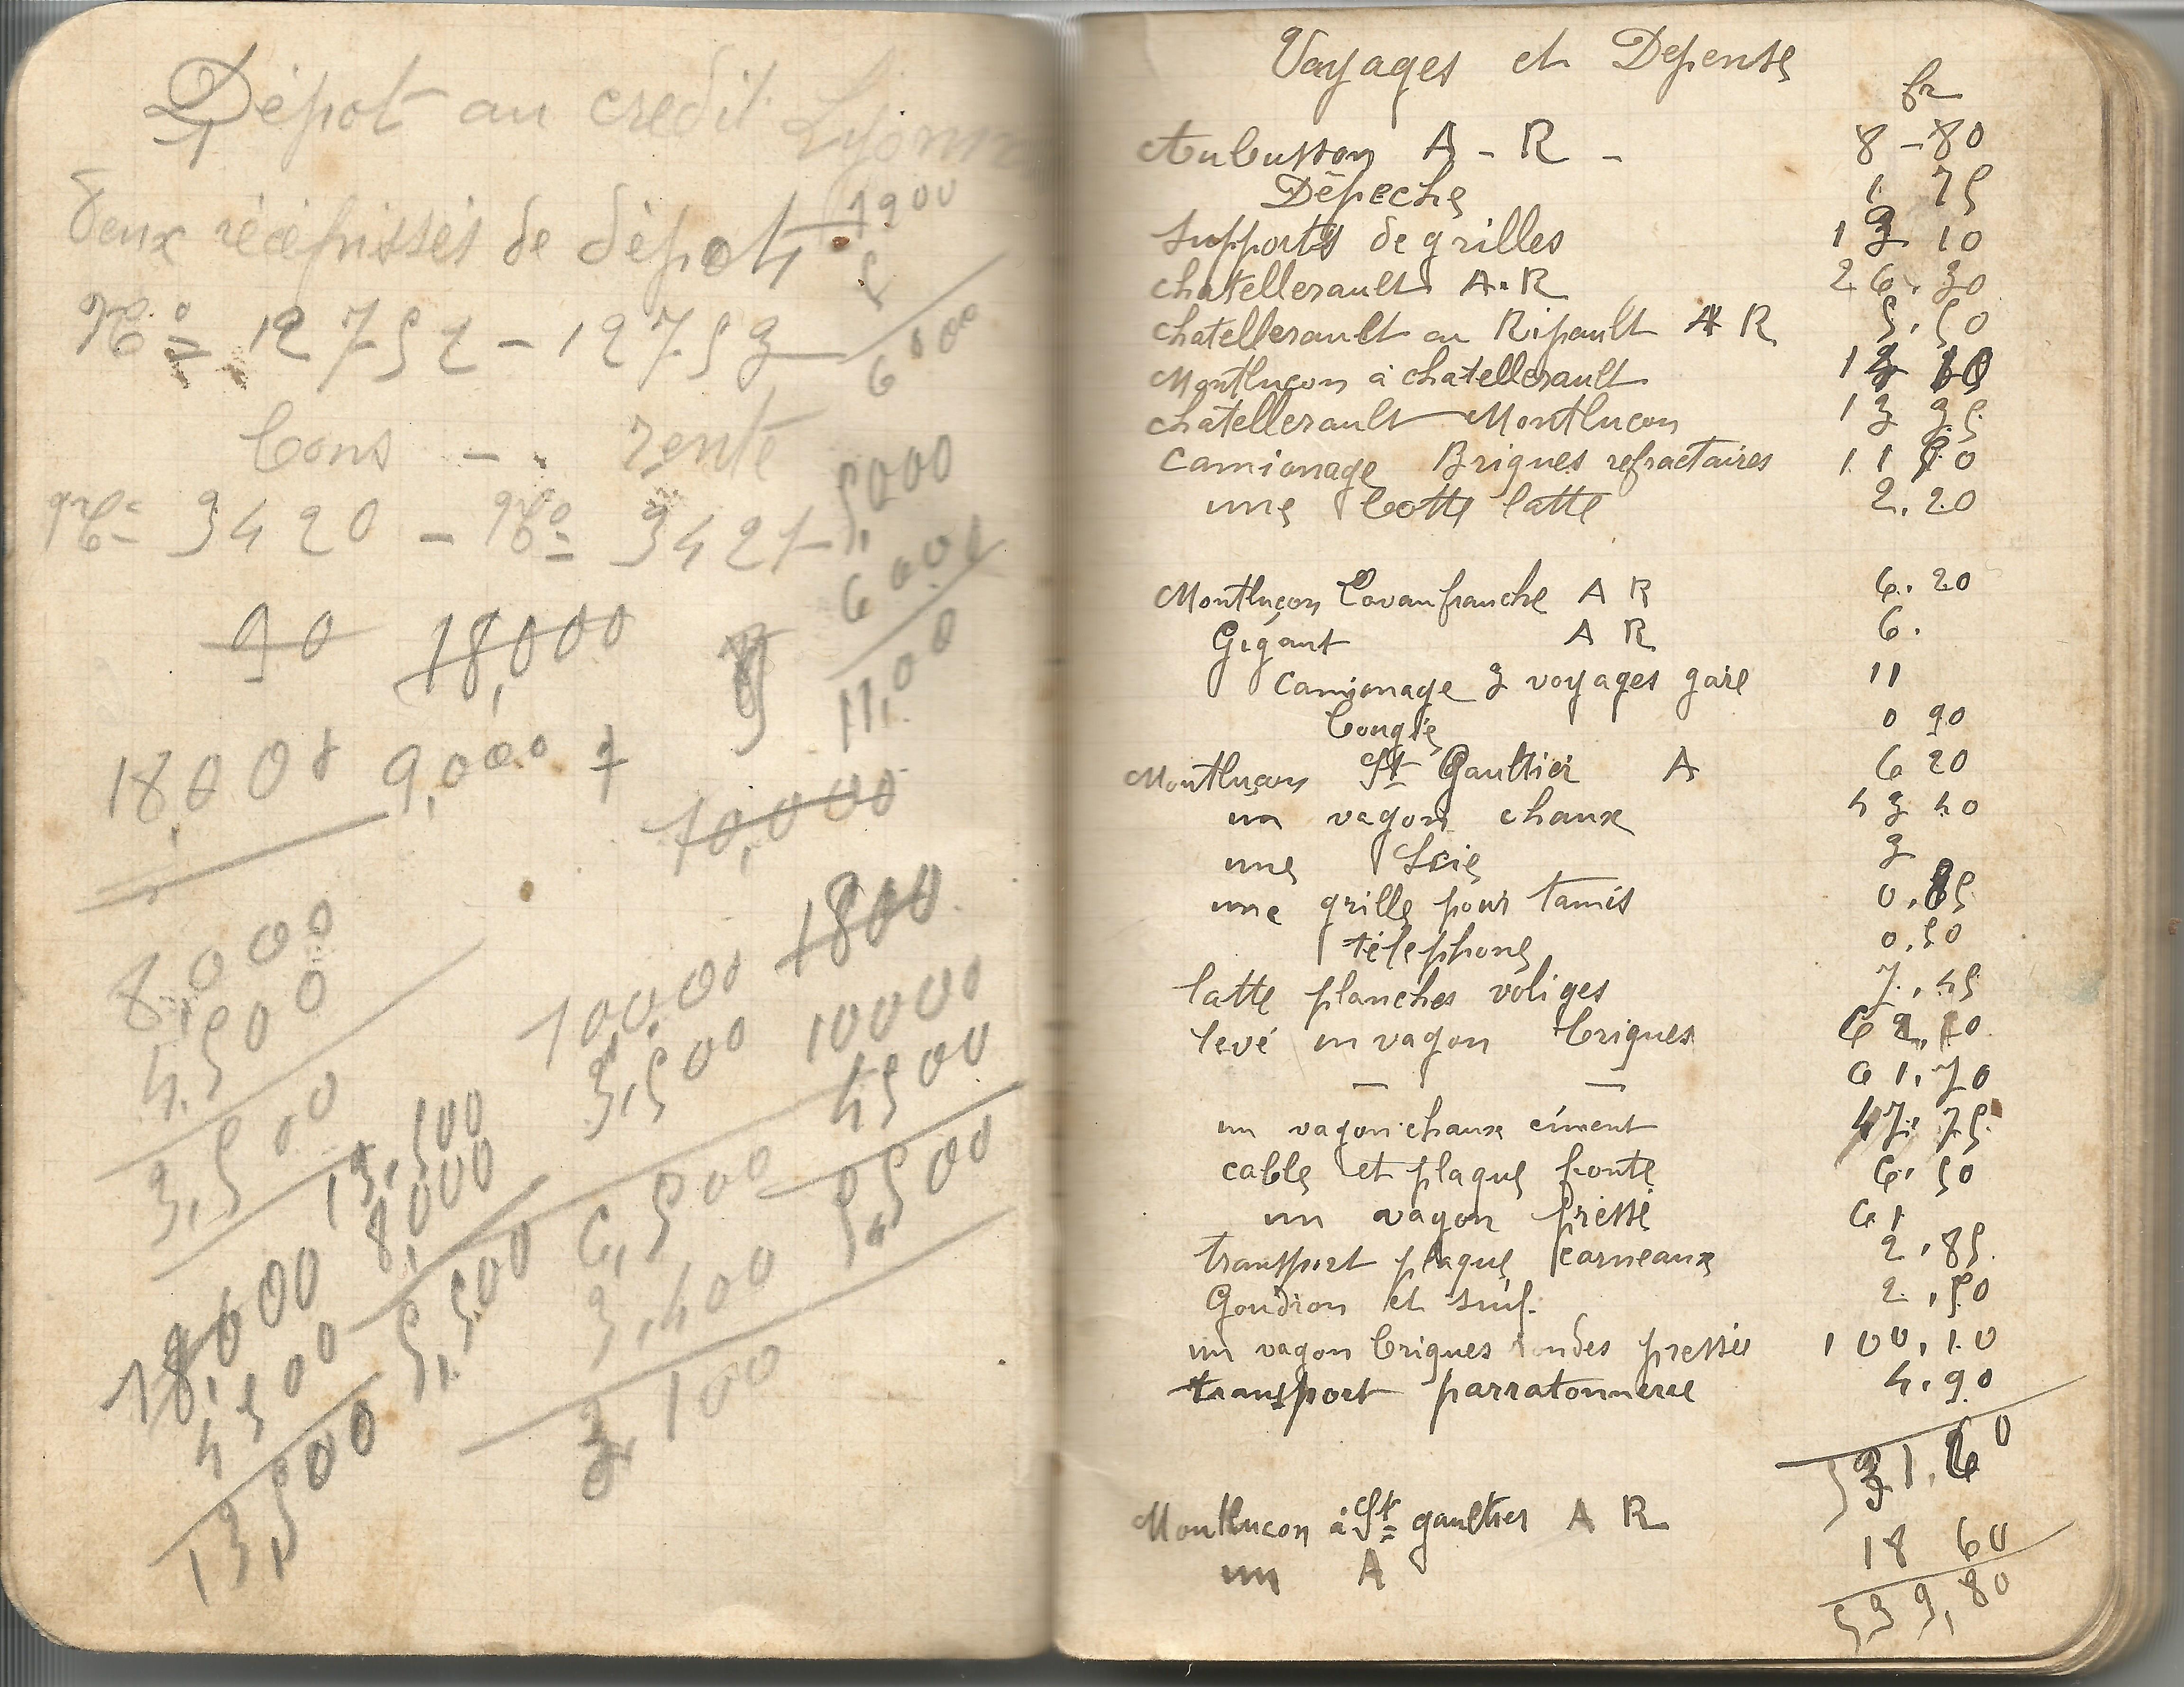 Dépot au credit Lyonn
deux récépissés de dépot 1900
5
Nº 12752 - 12753
6000
bons - rente
5000
Nº 3420 - Nº 3421
6000
90 18,000
11,00
18,000 9,000
10,000
8,000
4,500
3,500
1800
10,000 10000
3,500 4500
6,500 5,500
3,400
3,100
13,500
8,000
5,500
18,000
4,500
13,500
Voyages et Depense
fr
Aubusson A - R - 8 - 80
Dépeche 1 75
supports de grilles 13 10
chatellerault A.R 26.30
chatellerault au Ripault A R 5.50
Montluçon à chatellerault 1
chatellerault Montlucon 13 35
camionage Briques refractaires 11 0
une botte latte 2.20
Montluçon Lavaufranche A R 6.20
Gigant A R 6.
camionage 3 voyages gare 11
bougie 0 90
Montluçon St Gaultier A 6 20
un vagon chaux 43 40
une Scie 3
une grille pour tamis 0.85
téléphone 0.50
latte planches voliges 7.45
levé un vagon briques 6
— — 61.70
un vagon chaux ciment 47.75
cable et plaque fonte 6.50
un vagon pressé 61
transport plaque carneaux 2.85
Goudron et suif. 2.50
un vagon briques pressés 100.10
transport parratonnerre 4.90
531.60
Montlucon à St gaultier A R
18 60
un A
539,80